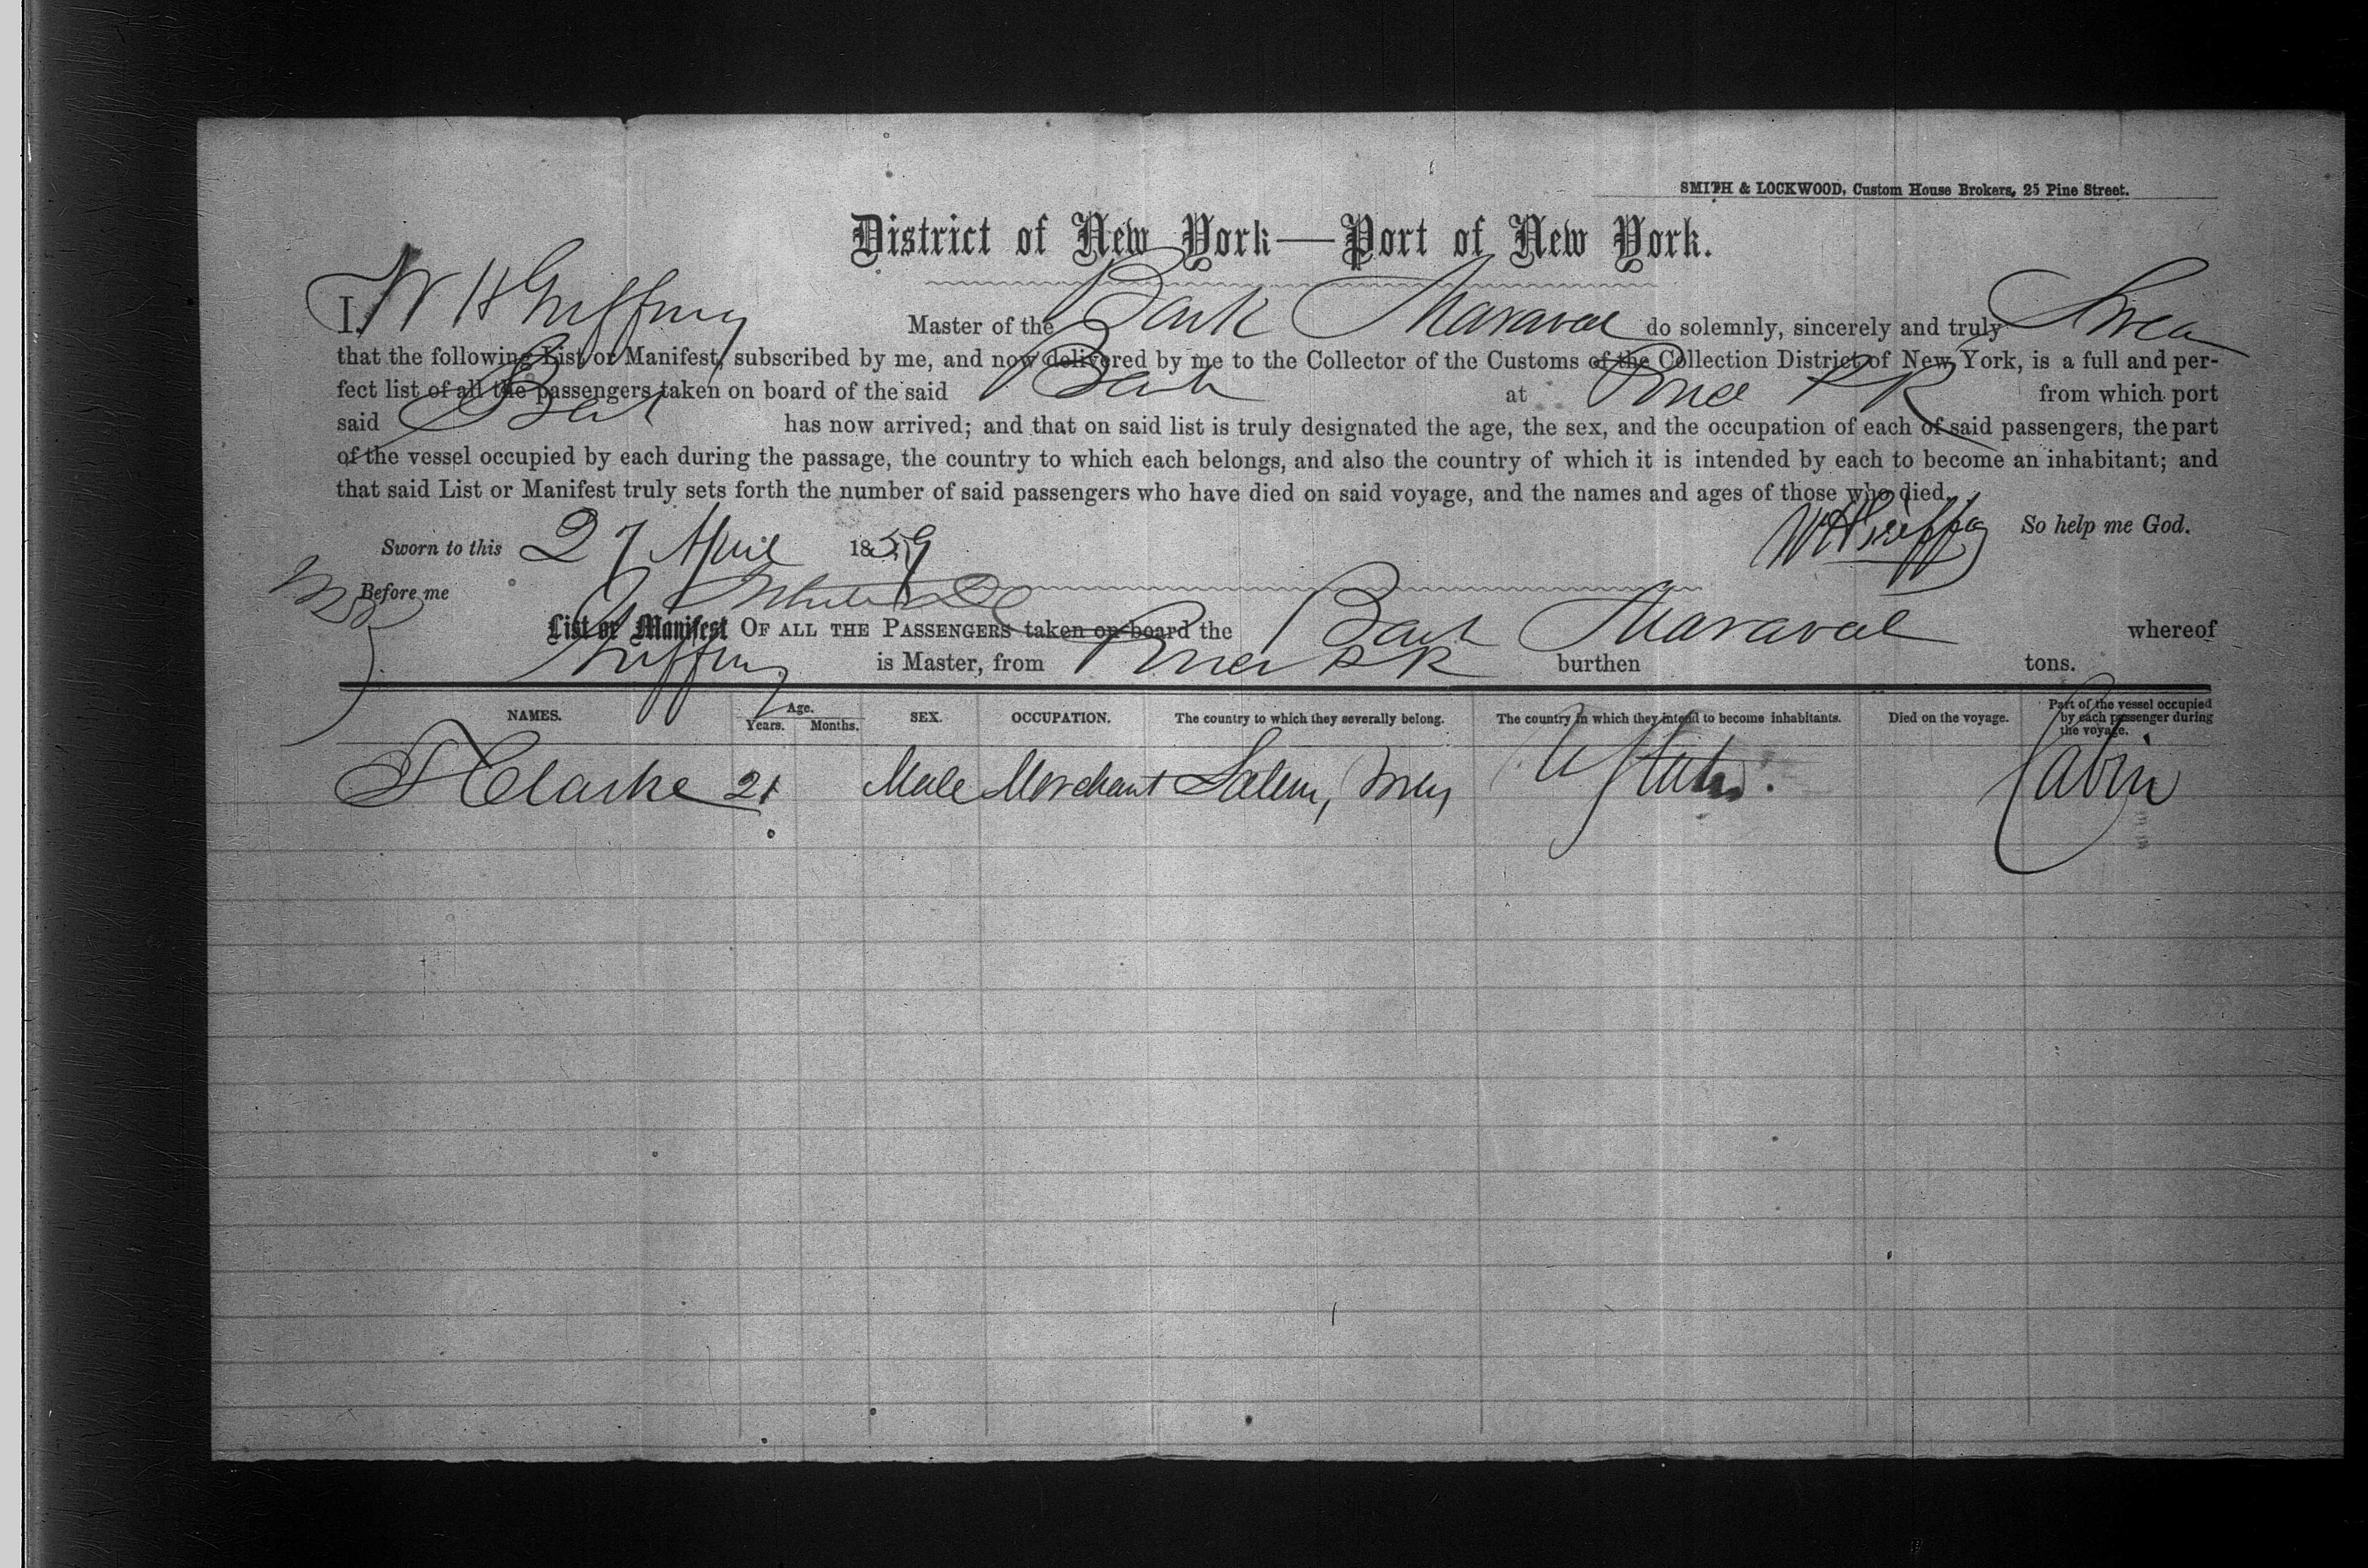 SMITH & LOCKWOOD, Custom House Brokers, 25 Pine Street.
District of New York—Port of New York.
I, W H Griffing Master of the Bark Maraval do solemnly, sincerely and truly Swear
that the following List or Manifest, subscribed by me, and now delivered by me to the Collector of the Customs of the Collection District of New York, is a full and per-
fect list of all the passengers taken on board of the said Bark at Ponce P R from which port
said Bark has now arrived; and that on said list is truly designated the age, the sex, and the occupation of each of said passengers, the part
of the vessel occupied by each during the passage, the country to which each belongs, and also the country of which it is intended by each to become an inhabitant; and
that said List or Manifest truly sets forth the number of said passengers who have died on said voyage, and the names and ages of those who died.
Sworn to this 27 April 1859 W H Griffing So help me God.
Before me
List or Manifest OF ALL THE PASSENGERS taken on board the Bark Maraval whereof
Griffing is Master, from Ponce P R burthen tons.
NAMES. Age. Years. Months. SEX. OCCUPATION. The country to which they severally belong. The country in which they intend to become inhabitants. Died on the voyage. Part of the vessel occupied by each passenger during the voyage.
Clarke 21 Male Merchant Salem, U States. Cabin